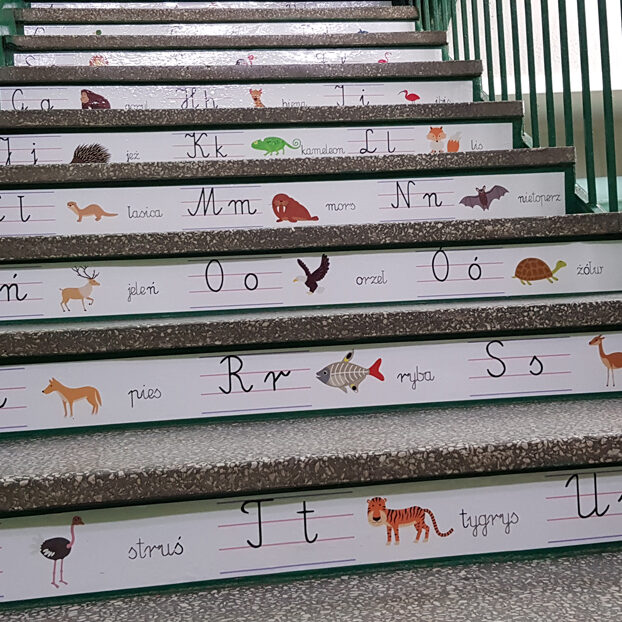 G g goryl H h hiena I i ibis
J j jeż K k kameleon L l lis
Ł ł łasica M m mors N n nietoperz
ń jeleń O o orzeł Ó ó żółw
pies R r ryba S s
struś T t tygrys U